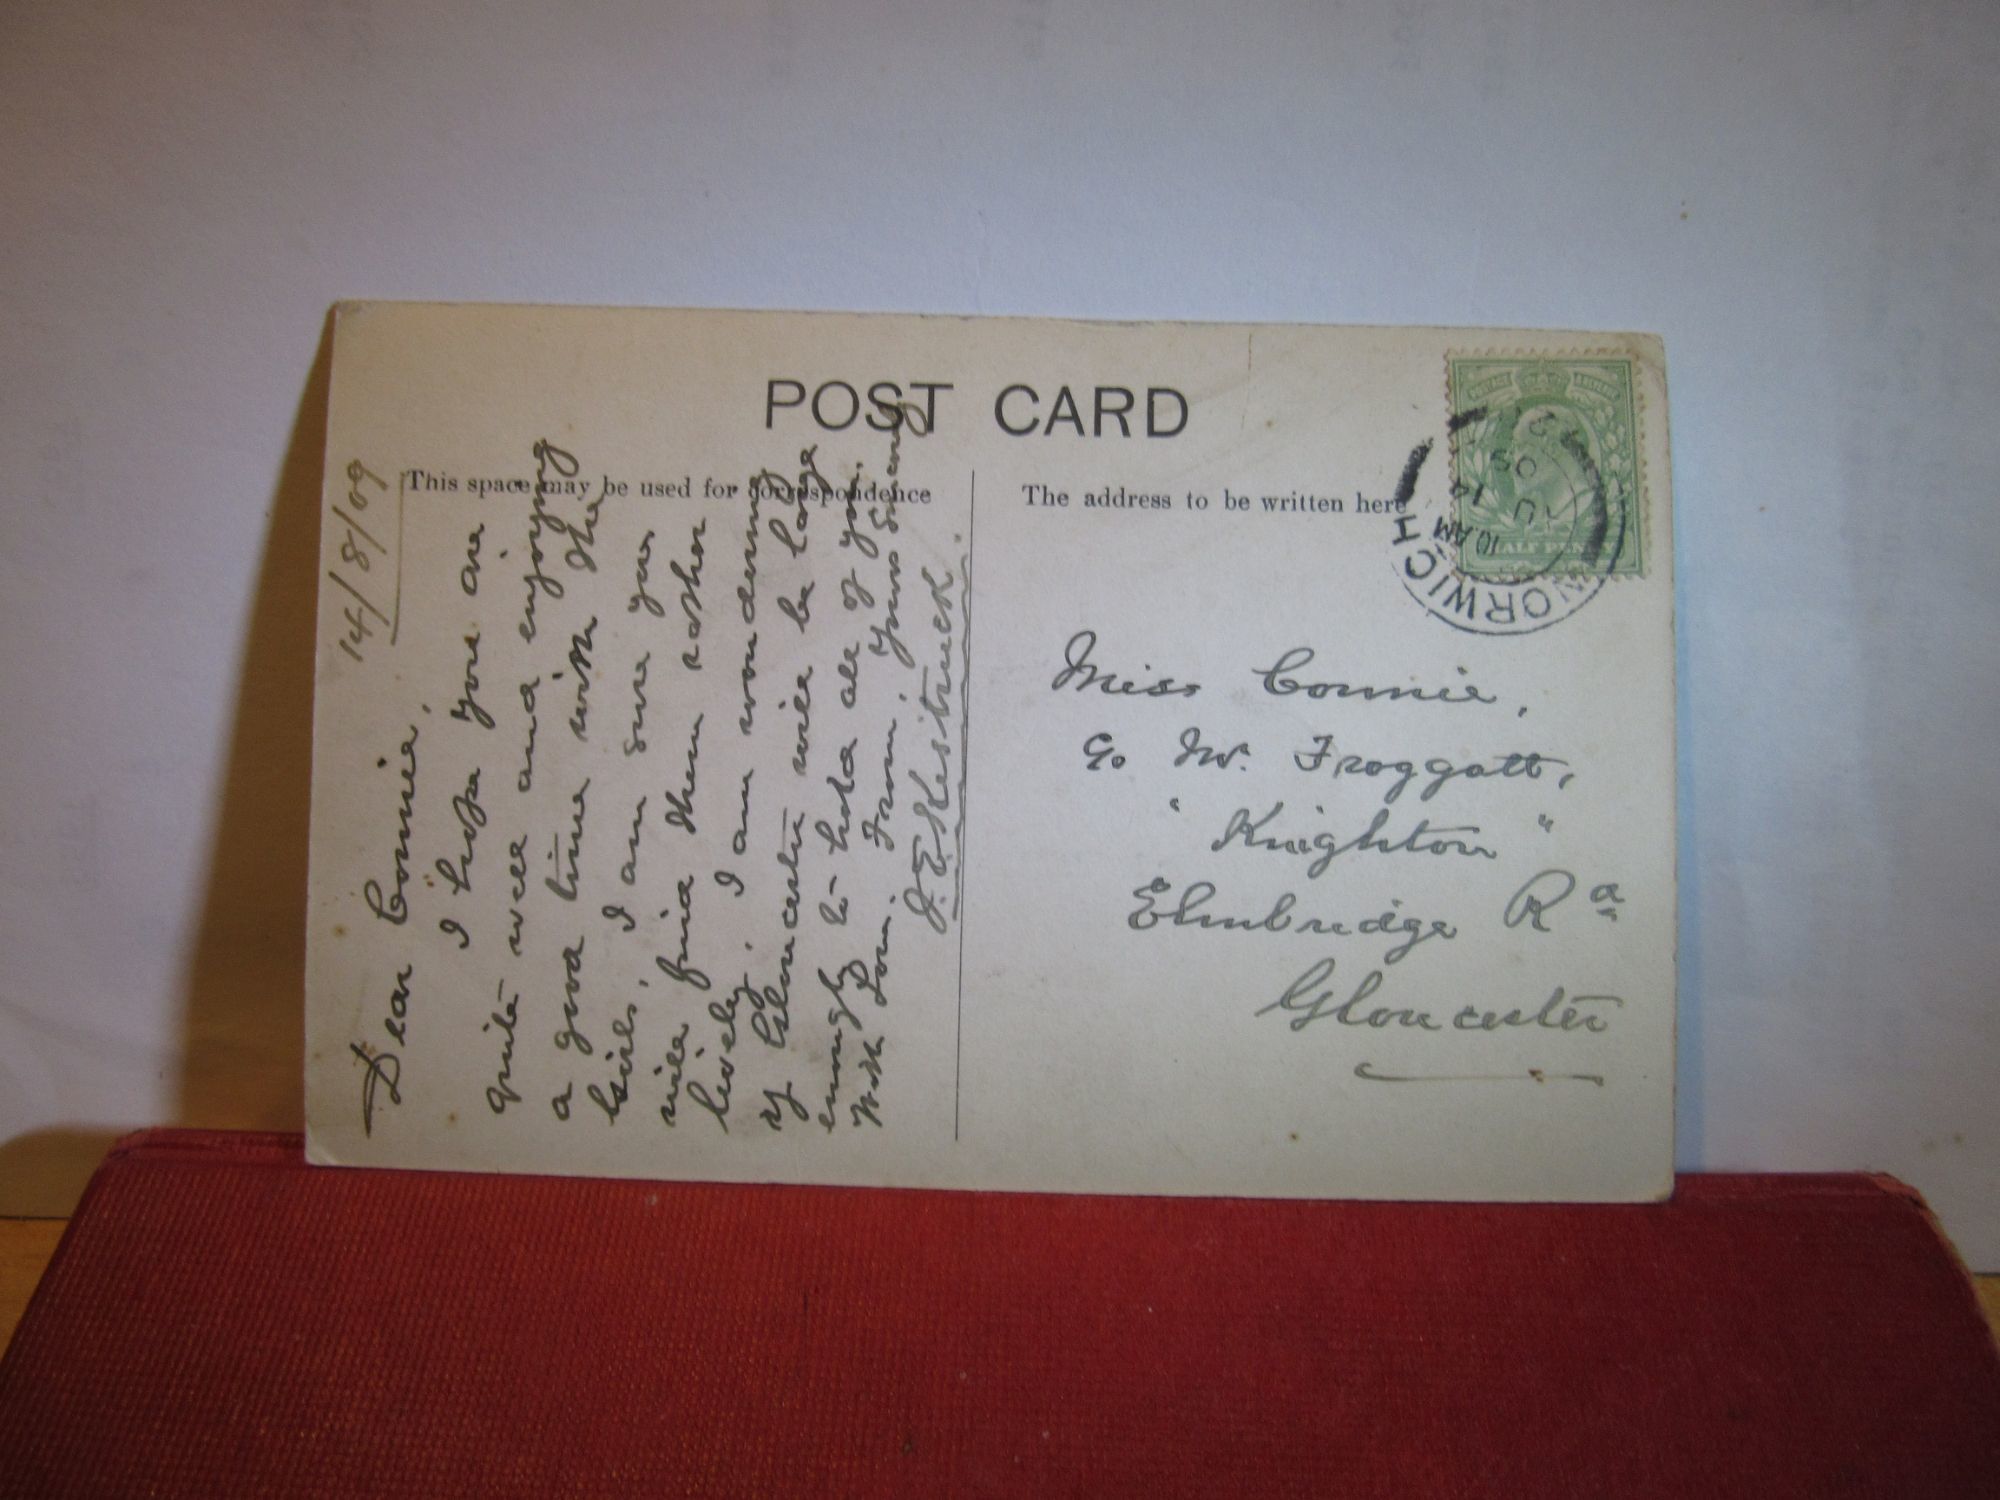 POST CARD
This space may be used for correspondence
The address to be written here
14/8/09
Dear Connie,
I hope you are
quite well and enjoying
a good time with the
Girls, I am sure you
will find them rather
lively. I am wondering
if Gloucester will be large
enough to hold all of you.
With Love. From, Yours Sincerely
Miss Connie,
c/o Mr. Froggatt,
"Knighton"
Elmbridge Rd
Gloucester
NORWICH
10.AM
14
09
HALF PENNY